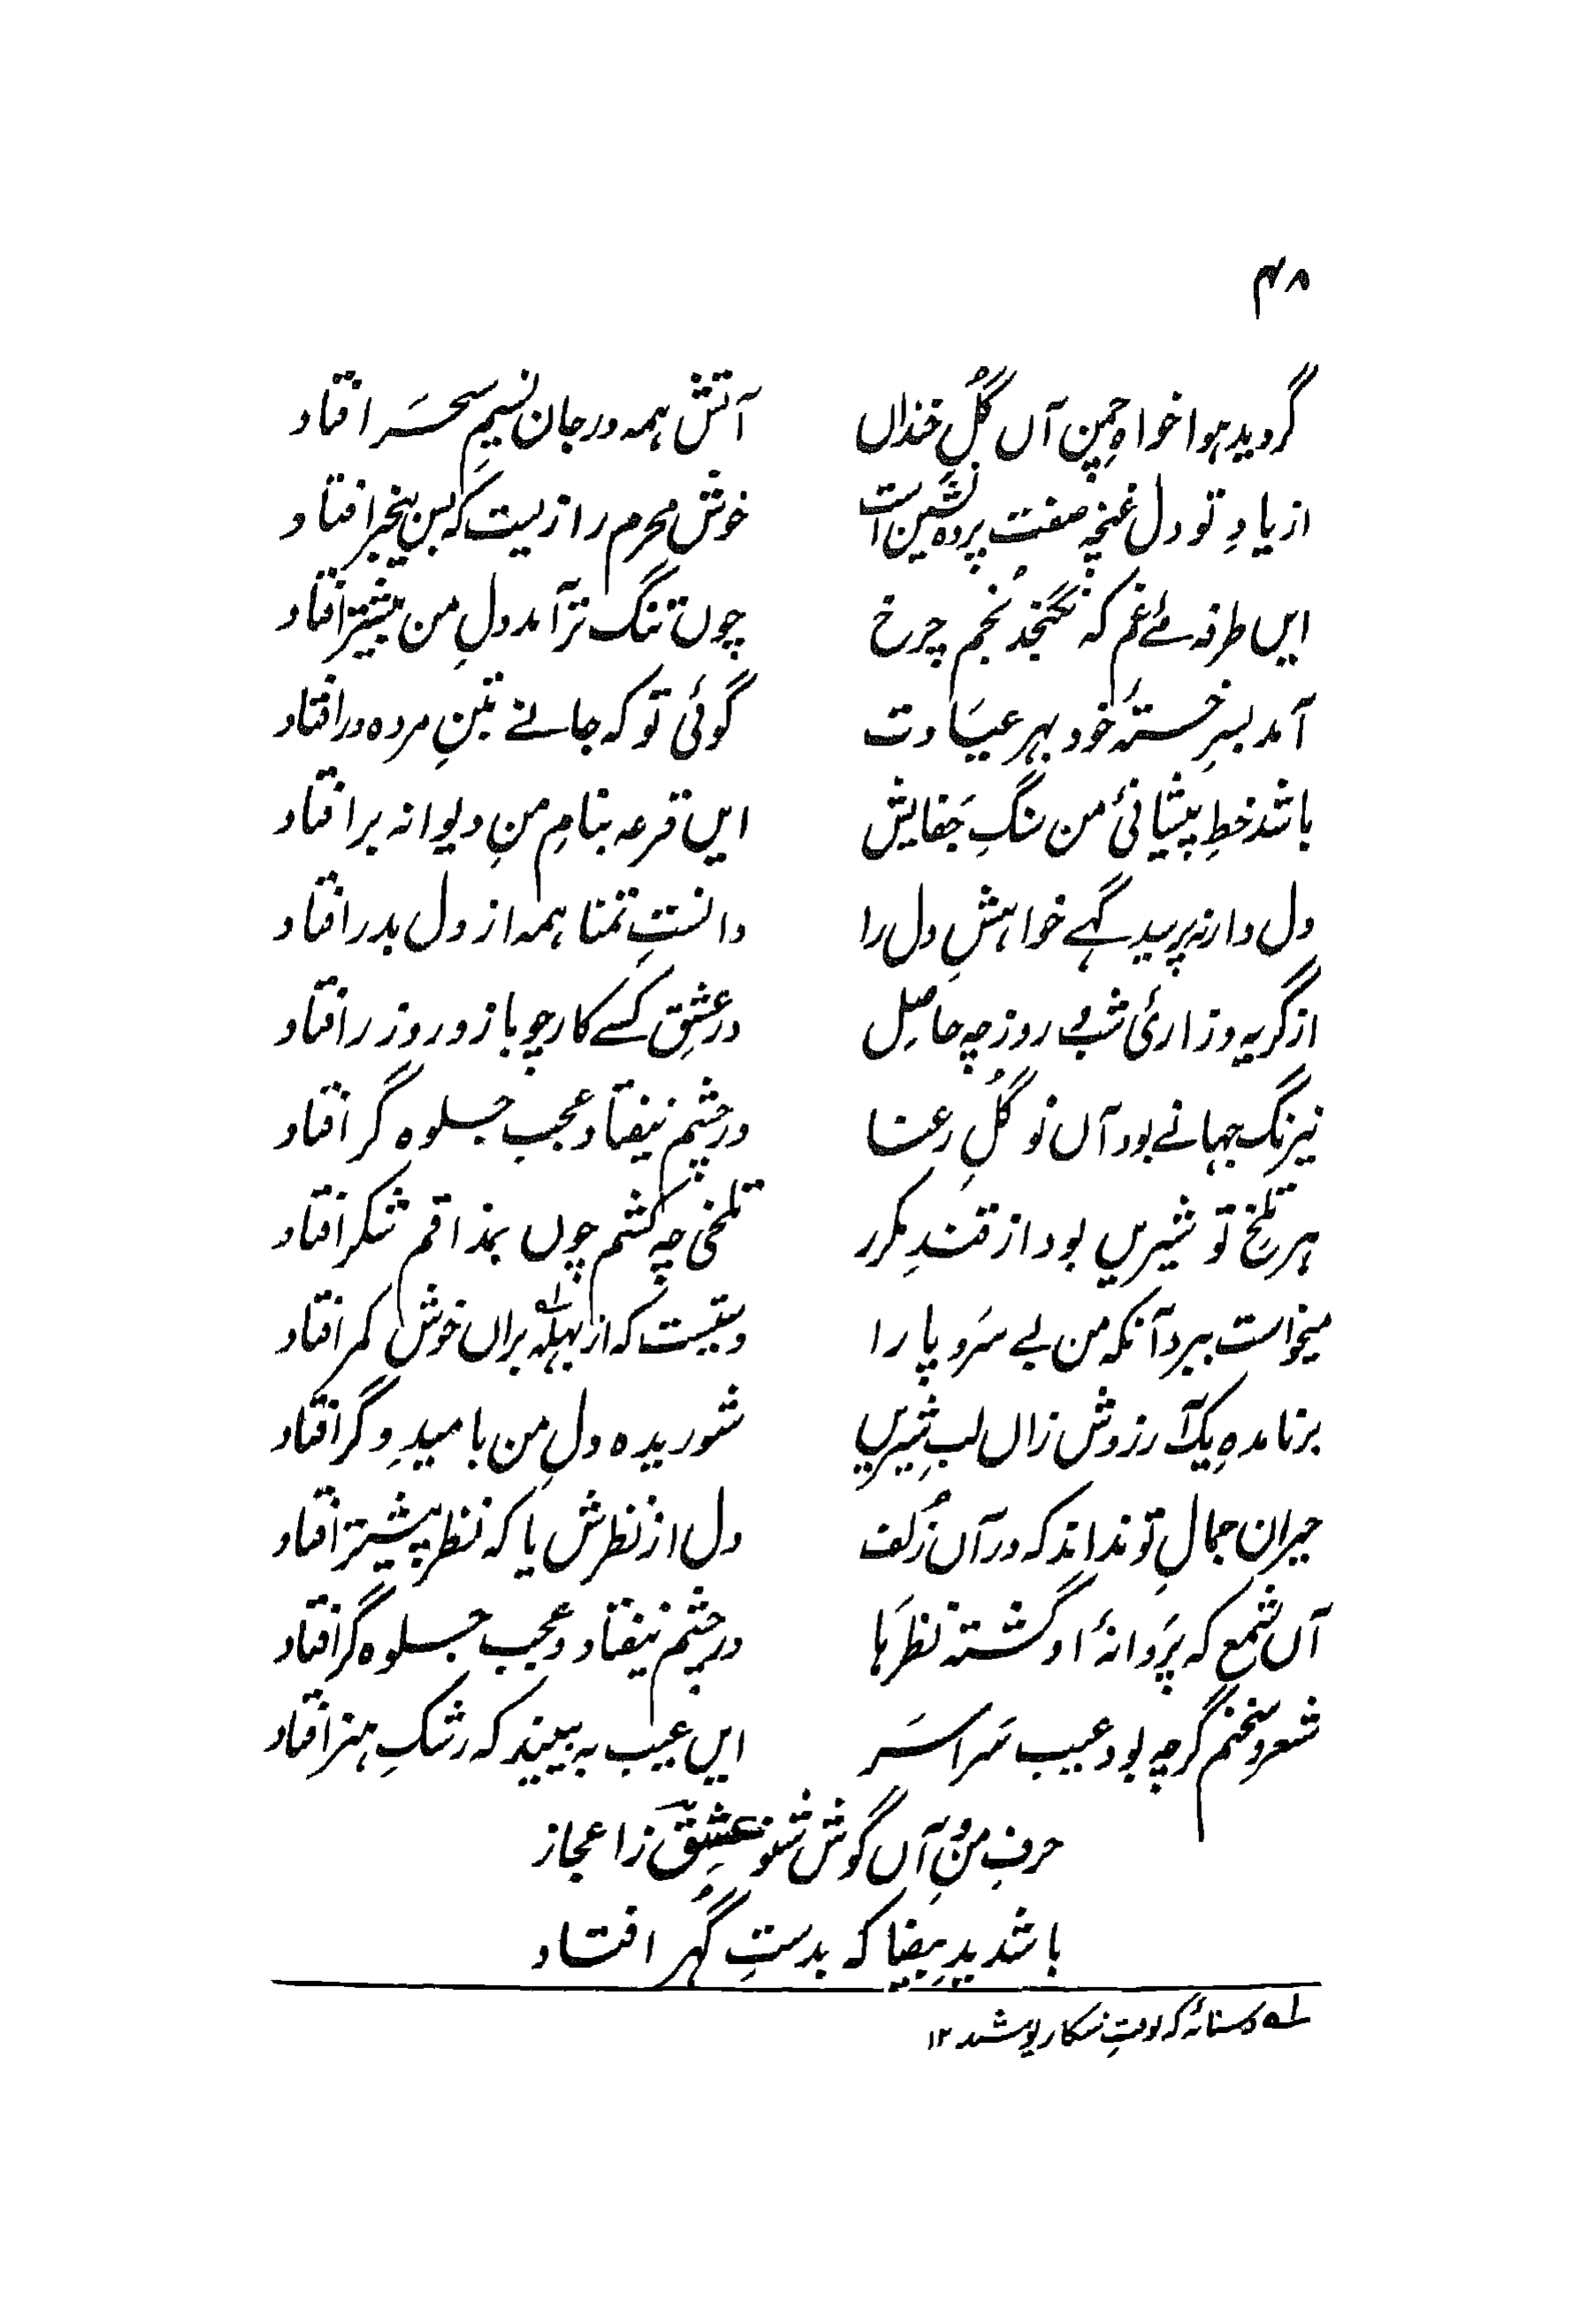 ۴۸
گردید ہوا خواہِ چمن آں گلُِ خنداں آتش ہمہ در جان نسیمِ سحَر افتاد
از یادِ تو دل غنچہ صفت پردہ نشین است خوش محرم رازیست کہ بس بیخبر افتاد
ایں طرفہ مئے غم کہ نگنجد نجم چرخ چوں تنگ تر آمد دلِ من بیشتر افتاد
آمد بسرِ خستۂ خود بہر عیَادت گوئی تو کہ جانے بتنِ مردہ در افتاد
باشد خطِ پیشانیٔ من سنگِ جَفایش ایں قرعہ بنامِ منِ دیوانہ بر افتاد
دل دار نہ پرسید گہے خواہشِ دل را دانستِ تمنا ہمہ از دل بدر افتاد
از گریہ و زاریٔ شب و روز چہ حاصِل در عشِق کسے کار چو بازور و زر افتاد
نیرنگ جہانے بود آں نو گلُِ رعنا در چشم نیفتاد عجب جلوہ گر افتاد
ہر تلخِ تو شیریں بود از قندِ مکرر تلخی چہ کشم چوں بمذاقم شکر افتاد
میخواست ببرد آنکہ من بے سَر و پا را دستیست کہ از بہلہ۱ براں خوش کمر افتاد
برنامدہ یک آرزوش زاں لبِ شیریں شوریدہ دلِ من بامیدِ دگر افتاد
حیران جمالِ تو نداند کہ در آں زُلف دل از نظرش یا کہ نظر پیشتر افتاد
آں شمع کہ پَروانۂ او گشتہ نظرہَا در چشم نیفتاد و عجب جلوہ گر افتاد
شعر و سخنم گرچہ بود عیب سَراسَر ایں عیب بہ بینید کہ رشکِ ہنر افتاد
حرفِ من و آں گوش شنو عشِقؔ ز اعجاز
باشد یدِ بیضا کہ بدستِ گہُر افتاد
۱؎ دستانۂ کہ بوقتِ شکار پوشند ۱۲